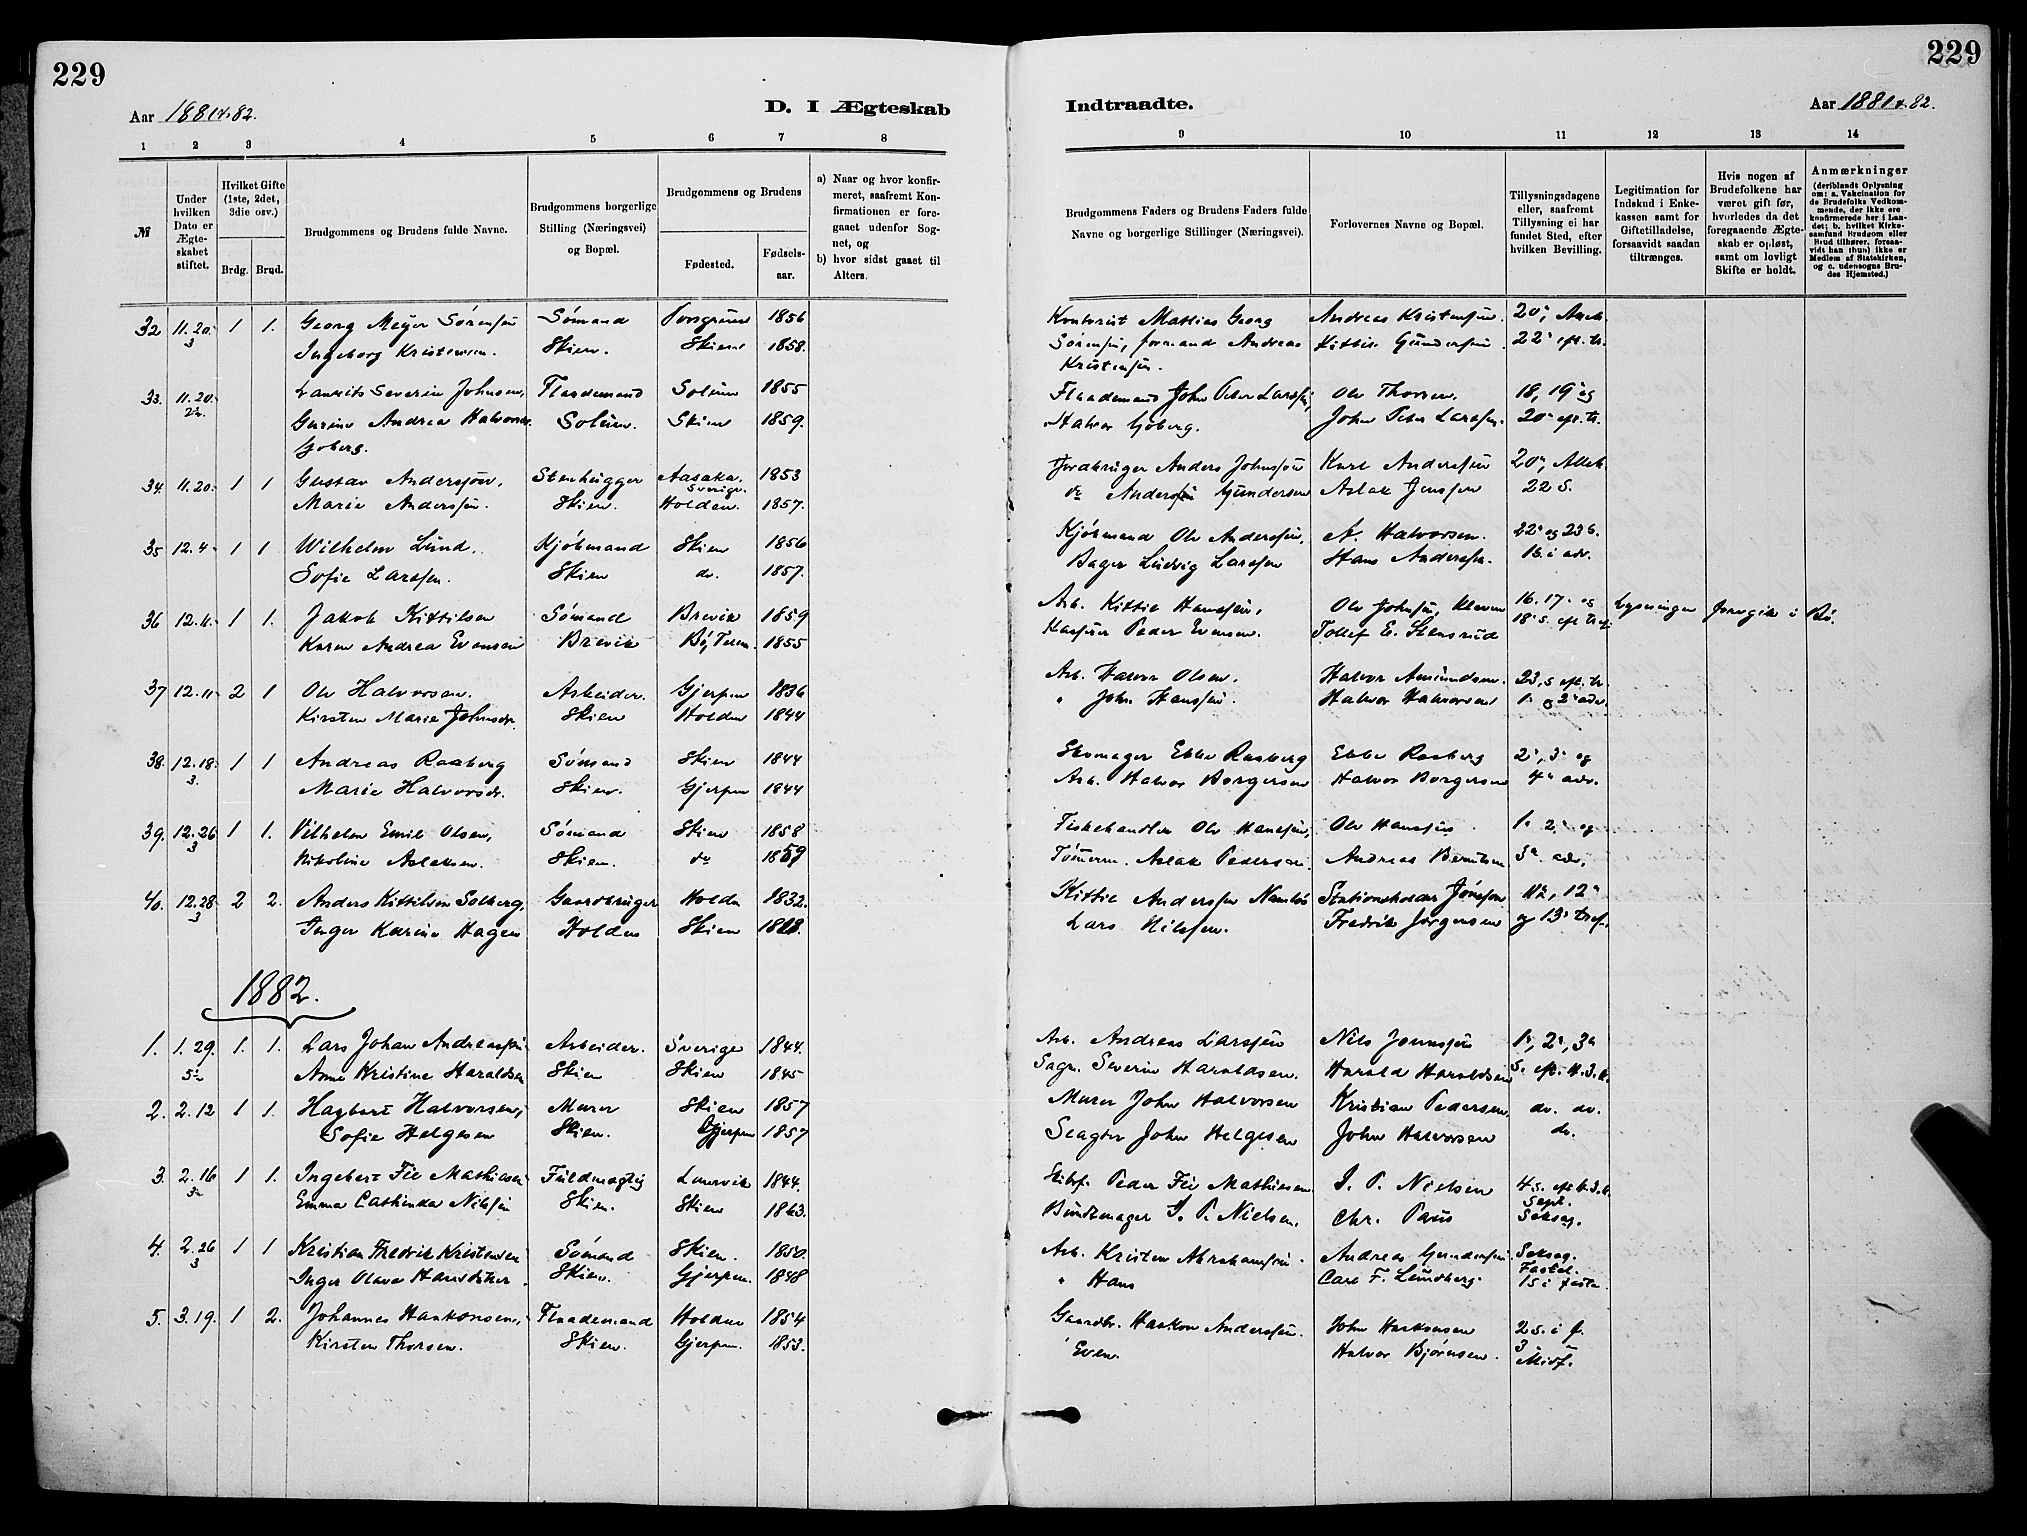 229
Aar 1881 & 82.
D. I Ægteskab
1 2 3 4 5 6 7 8
№
Under hvilken Dato er Ægteskabet stiftet.
Hvilket Gifte (1ste, 2det, 3die osv.)
Brdg. Brud.
Brudgommens og Brudens fulde Navne.
Brudgommens borgerlige Stilling (Næringsvei) og Bopæl.
Brudgommens og Brudens
Fødested.
Fødselsaar.
a) Naar og hvor konfirmeret, saafremt Konfirmationen er foregaaet udenfor Sognet, og
b) hvor sidst gaaet til Alters.
32 11.20. 1 1. Georg Meyer Sørensen Sømand Porsgrund 1856
3 Ingeborg Kristensen. Skien. Skien 1858.
33. 11.20. Laurits Severin Johnsen, Flaademand Solum 1855
Gurine Andrea Halvorsen Solum. Skien 1859.
Gjoberg.
34. 11.20. 1 1 Gustav Anderssøn, Stenhugger Aasaka. Sverige. 1853
Marie Anderssen. Skien. Holden. 1857.
35 12.4 1 1 Wilhelm Lund. Kjøbmand Skien 1856
Sofie Larssen. Skien do. 1857.
36 12.4. 1 1. Jakob Kittilsen Sømand Brevik 1859
Karen Andrea Evensen Brevik Bø, Telem. 1855
37 12.11 2 1 Ole Halvorsen. Arbeider. Gjerpen 1836
Kirsten Marie Johnsdr. Skien Holden 1844
38. 12.18. 1 1 Andreas Raaberg Sømand Skien 1844
3 Marie Halvorsdr. Skien. Gjerpen 1844
39. 12.26 1 1. Vilhelm Emil Olsen, Sømand Skien 1858
3 Nikoline Aslaksen. Skien. do 1859
40. 12.28 2 2. Anders Kittilsen Solberg, Gaardbruger Holden 1832.
3 Inger Karine Hagen Holden Skien
1882.
1. 1.29. 1. 1. Lars Johan Andreassen Arbeider. Sverige 1844.
Anne Kristine Haraldsen Skien Skien 1845
2. 2.12 1 1. Hagbart Halvorsen, Murer Skien 1857
Sofie Helgesen Skien. Gjerpen 1857
3. 2.16 1 1. Ingebert Fie Mathiasen Fuldmægtig Laurvik 1844.
Emma Cathinka Nilssen Skien. Skien 1863.
4. 2.26 1 1 Kristian Fredrik Kristensen Sømand Skien. 1850.
3 Inger Olava Hansdtter. Skien. Gjerpen. 1848
5. 3.19. 1 2. Johannes Haakonsen, Flaademand Holden 1854
Kirsten Thorsen. Skien. Gjerpen. 1853.
229
Indtraadte.
Aar 1881 & 82.
9 10 11 12 13 14
Brudgommens Faders og Brudens Faders fulde Navne og borgerlige Stillinger (Næringsvei).
Forlovernes Navne og Bopæl.
Tillysningsdagene eller, saafremt Tillysning ei har fundet Sted, efter hvilken Bevilling.
Legitimation for Indskud i Enkekassen samt for Giftetilladelse, forsaavidt saadan tiltrænges.
Hvis nogen af Brudefolkene har været gift før, hvorledes da det foregaaende Ægteskab er opløst, samt om lovligt Skifte er holdt.
Anmærkninger
(deriblandt Oplysning om: a. Vakcination for de Brudefolks Vedkommende, der ikke ere konfirmerede her i Landet; b. hvilket Kirkesamfund Brudgom eller Brud tilhører, forsaavidt han (hun) ikke er Medlem af Statskirken, og c. udensogns Brudes Hjemsted.)
Kontorist Mathias Georg Andreas Kristensen.
Sørensen, formand Andreas Kittil Gundersen. 22 eft. tr.
Kristensen.
Flaademand John Peter Larssen, Ole Thorsen. 18, 19 og
Halvor Gjoberg. John Peter Larssen. 20 eft. tr.
Jordbruger Anders Johnssøn Karl Anderssen
do Anderssen Gundersen Aslak Jenssen 22 S.
Kjøbmand Ole Anderssen, A. Halvorsen. 22 og 23 S.
Bager Ludvig Larssen Hans Anderssen. 1 S. i adv.
Arb. Kittil Hanssen, Ole Johnsen, Kleven 16. 17. og Lysninger foregik i Bø.
Peder Evensen. Tollef E. Stensrud 18 S. eft. tref.
Arb. Halvor Olsen. Halvor Amundsen. 23. S. eft. tr.
" John Hanssen. Halvor Halvorsen 1. og 2 adv.
Skomager Ebbe Raaberg Ebbe Raaberg 2, 3 og
Arb. Halvor Borgersen Halvor Borgersen 4 adv.
Fiskehandler Ole Hanssen, Ole Hanssen 1. 2. og
Tømerm. Aslak Pedersen Andreas Berntsen 3 adv.
Kittil Anderssen Namløs Stationsholder Jonssen 11, 12
Lars Nilssen. Fredrik Jørgensen og 13 tref.
Arb. Andreas Larssen Nils Jonnssøn 1, 2, 3
Sagm. Severin Haraldsen. Harald Haraldsen S. eft. H. 3. K.
Murer John Halvorsen Kristian Pedersen do. do.
Slagter John Helgesen John Halvorsen do.
Skibsf. Peder Fie Mathiesen. I. P. Nielsen 4 S. eft. H. 3. K.
Bundtmager I. P. Nielsen. Chr. Paus Sept. Seksag.
Arb. Kristen Abrahamsen. Andreas Gundersen. Seksag. Fastel.
" Hans Carl F. Lundberg. 1 S. i faste
Gaardbr. Haakon Anderssen. John Haakonsen 2 S. i f.
' Even. Halvor Bjørnsen. 3 Midf.